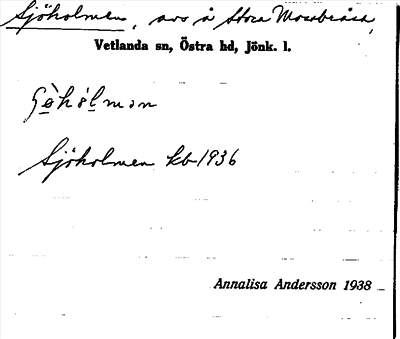 Sjöholmen, avs å Stora Mossbråta,
Vetlanda sn, Östra hd, Jönk. l.
Sjöholmen kb 1936
Annalisa Andersson 1938